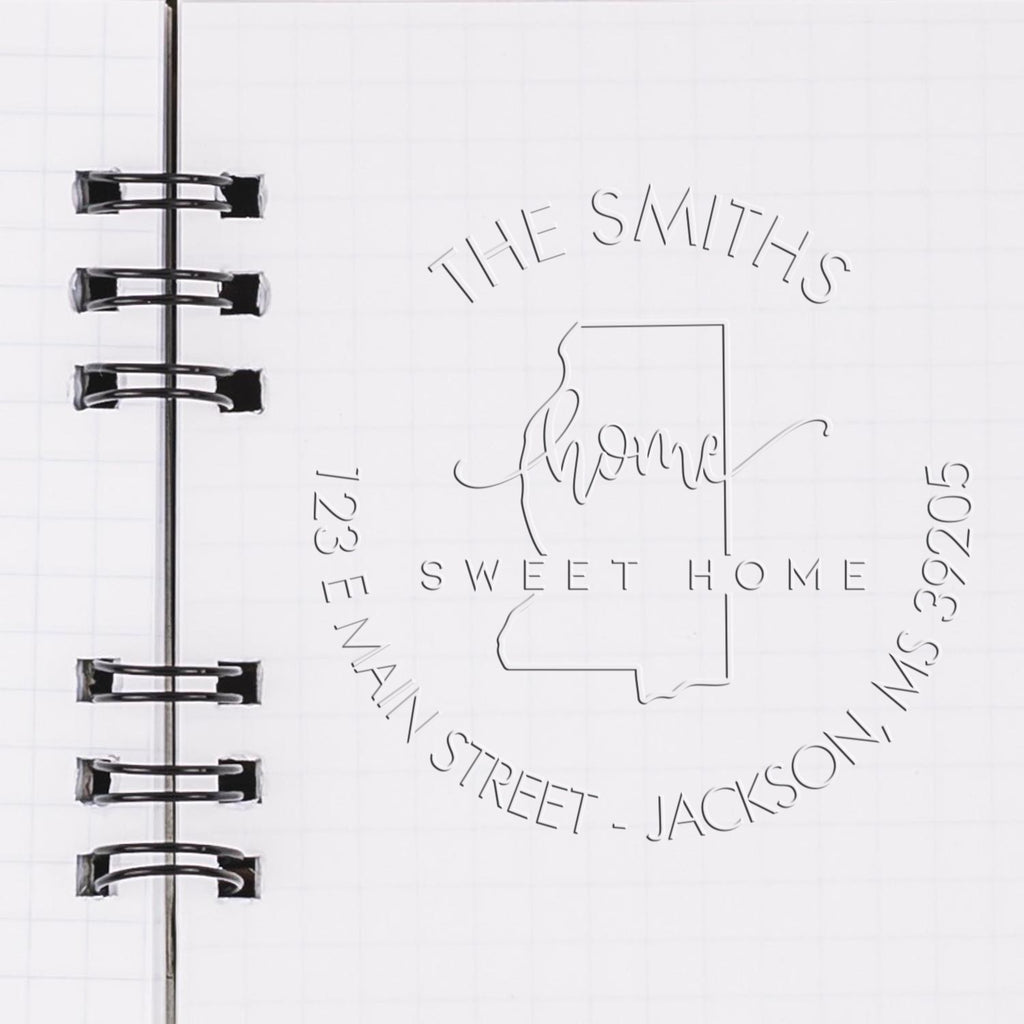 THE SMITHS
home
SWEET HOME
123 E MAIN STREET - JACKSON, MS 39205